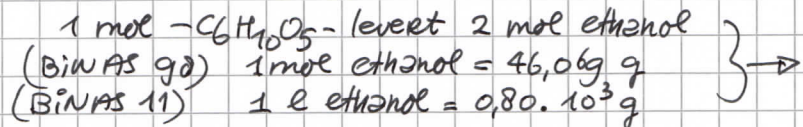 1 mol -C6H10O5- levert 2 mol ethanol
(BiNAS 98) 1 mol ethanol = 46,069 g
(BiNAS 11) 1 l ethanol = 0,80. 10³ g